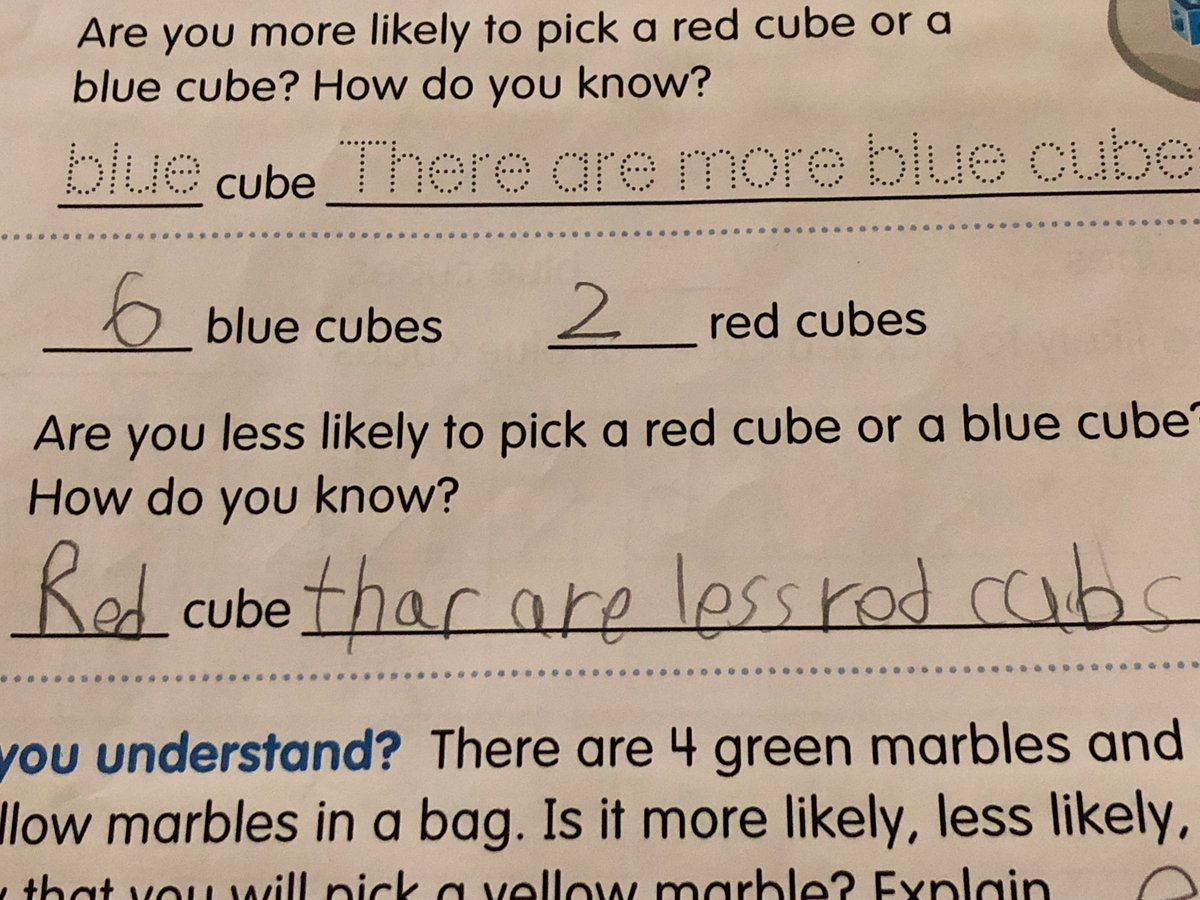 Are you more likely to pick a red cube or a
blue cube? How do you know?
blue cube There are more blue cube
6 blue cubes 2 red cubes
Are you less likely to pick a red cube or a blue cube?
How do you know?
Red cube thar are less red cubs
you understand? There are 4 green marbles and
llow marbles in a bag. Is it more likely, less likely,
that you will pick a yellow marble? Explain